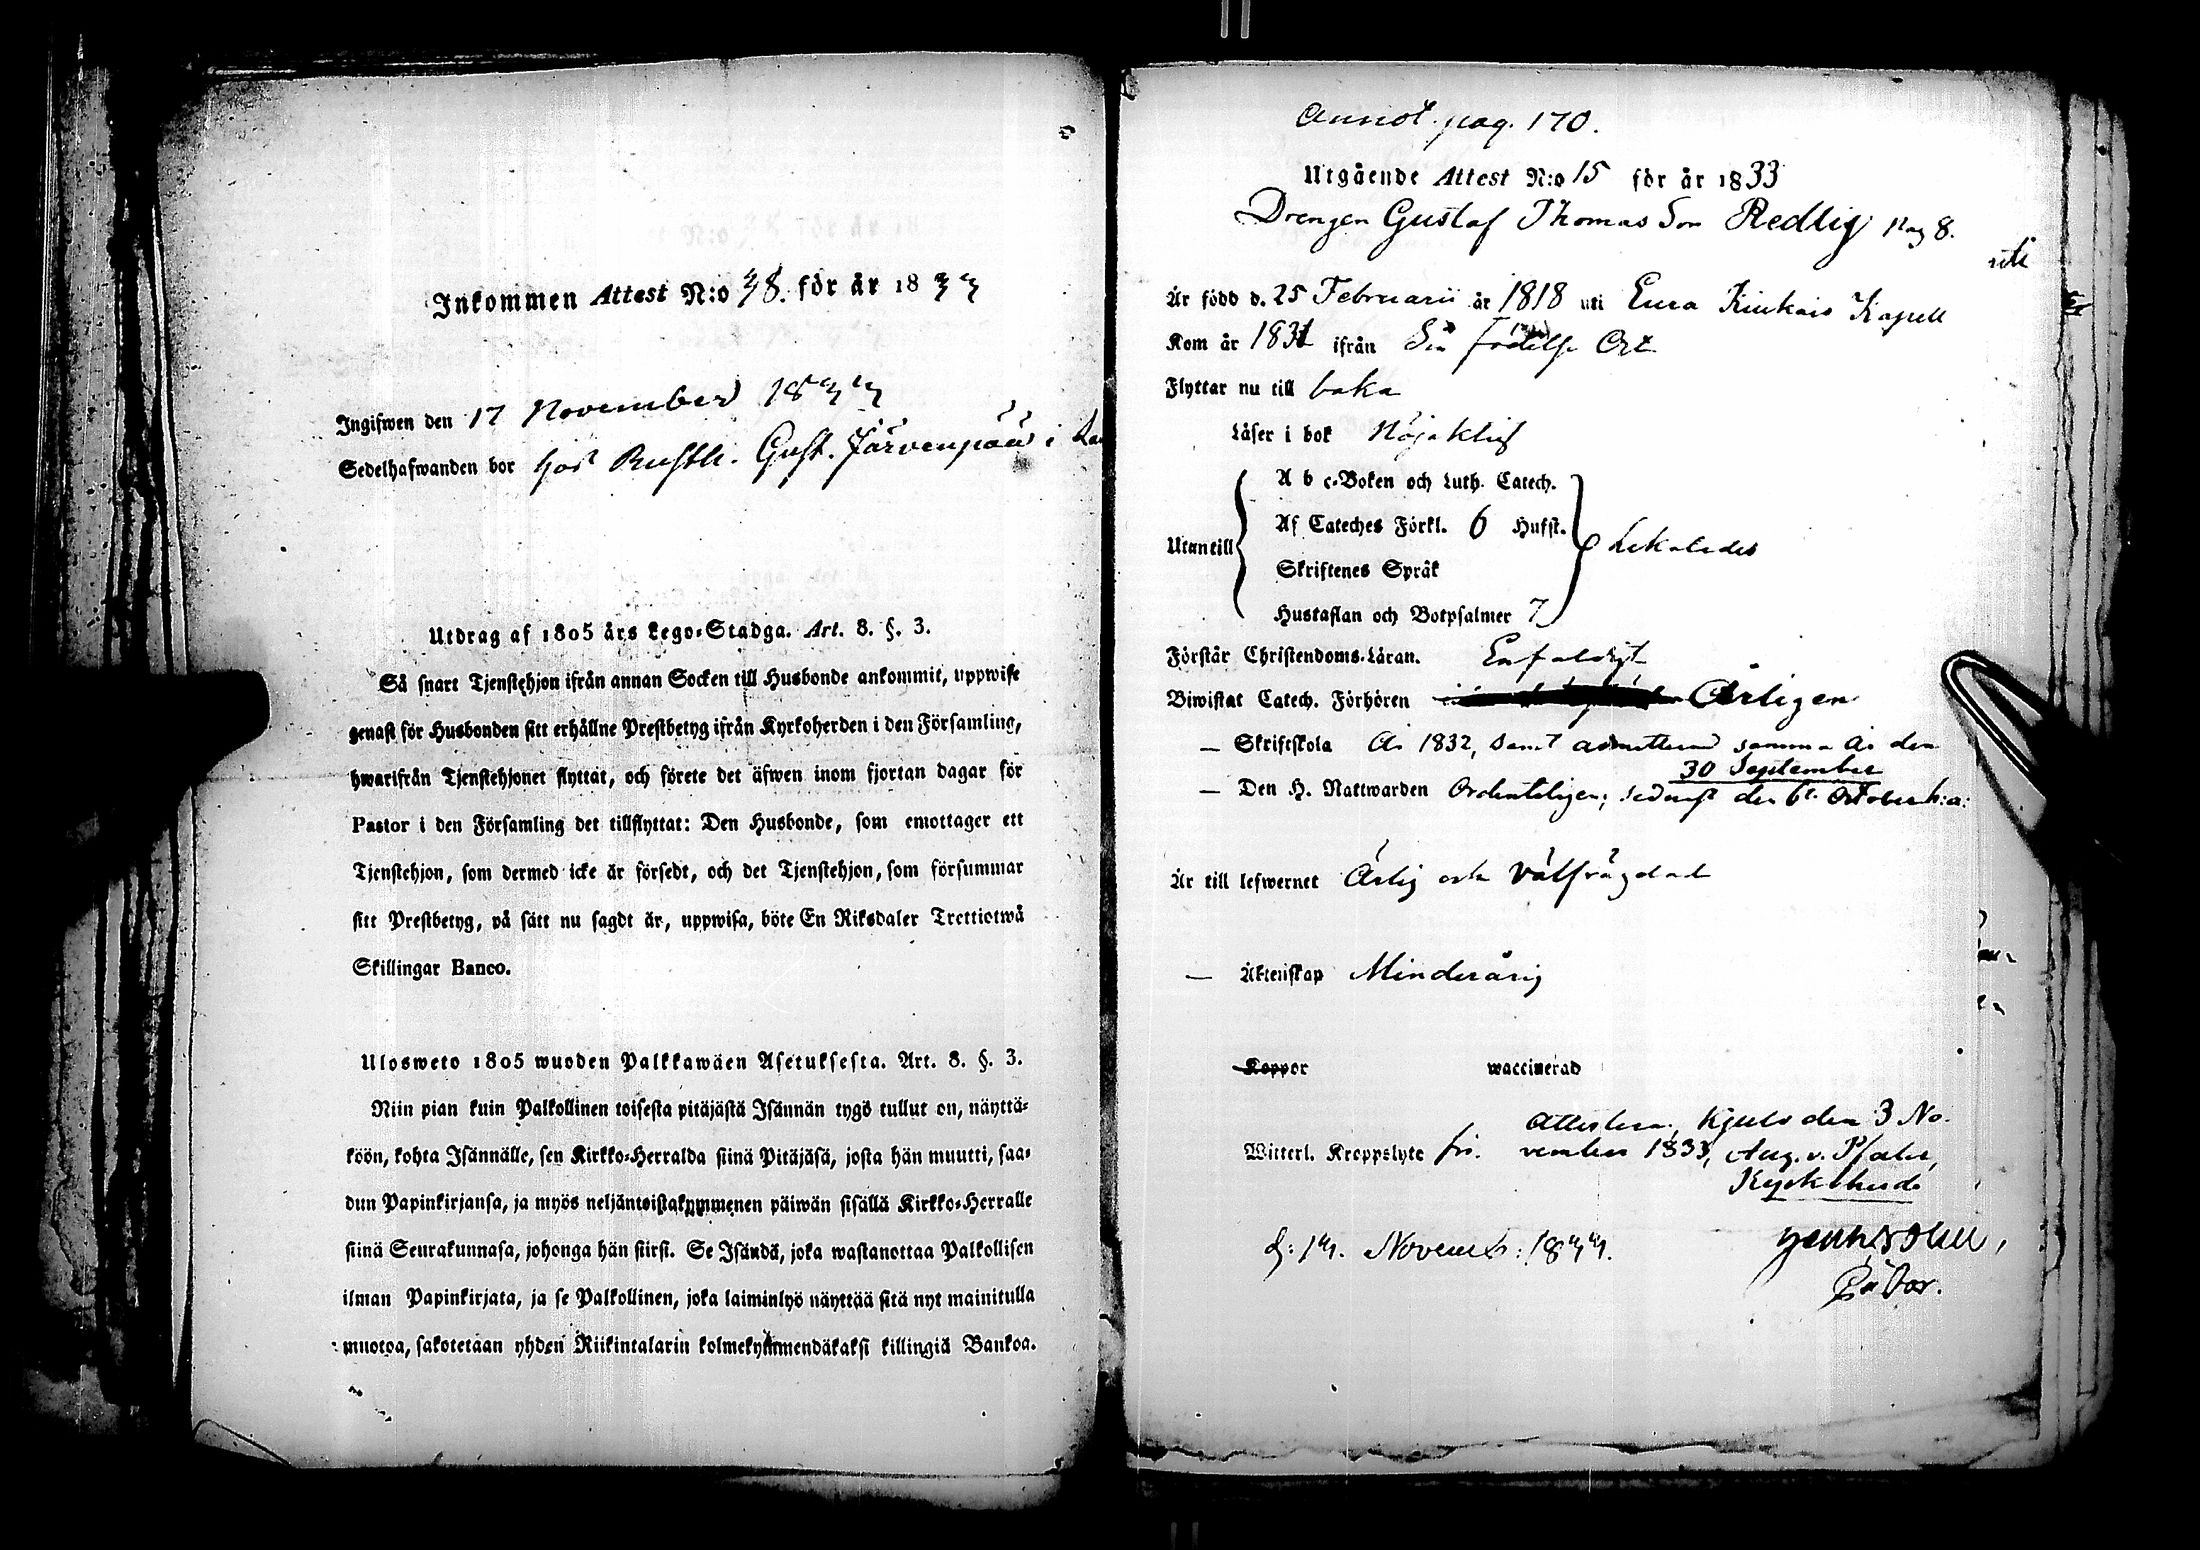 Inkommen Attest N:o 38. för år 1833
Ingifwen den 17 November 1833
Sedelhafwanden bor hos Rusth. Gust. Järvenpää i
Utdrag af 1805 års Lego-Stadga. Art. 8. §. 3.
Så snart Tjenstehjon ifrån annan Socken till Husbonde ankommit, uppwise
genast för Husbonden sitt erhållne Prestbetyg ifrån Kyrkoherden i den Församling,
hwarifrån Tjenstehjonet flyttat, och förete det äfwen inom fjortan dagar för
Pastor i den Församling det tillflyttat: Den Husbonde, som emottager ett
Tjenstehjon, som dermed icke är försedt, och det Tjenstehjon, som försummar
sitt Prestbetyg, på sätt nu sagdt är, uppwisa, böte En Riksdaler Trettiotwå
Skillingar Banco.
Ulosweto 1805 wuoden Palkkawäen Asetuksesta. Art. 8. §. 3.
Niin pian kuin Palkollinen toisesta pitäjästä Isännän tygö tullut on, näyttä-
köön, kohta Isännälle, sen Kirkko-Herralda siinä Pitäjäsä, josta hän muutti, saa-
dun Papinkirjansa, ja myös neljäntoistakymmenen päiwän sisällä Kirkko-Herralle
siinä Seurakunnasa, johonga hän siirsi. Se Isändä, joka wastanottaa Palkollisen
ilman Papinkirjata, ja se Palkollinen, joka laiminlyö näyttää sitä nyt mainitulla
muotoa, sakotetaan yhden Riikintalarin kolmekymmendäkaksi killingiä Bankoa.
Annot. pag. 170.
Utgående Attest N:o 15 för år 1833
Drengen Gustaf Thomas Son Redlig Pag 8.
Är född d. 25 Februarii år 1818 uti Eura Kiukais Kapell
Kom år 1831 ifrån Sin födelse Ort
Flyttar nu till baka
Läser i bok Nöjaktigt
Utantill
A b c-Boken och Luth. Catech.
Af Cateches Förkl. 6 Hufst.
Skriftenes Språk
Hustaflan och Botpsalmer 7
Lekaledes
Förstår Christendoms-Läran. Enfaldigt
Biwistat Catech. Förhören Årligen
— Skriftskola År 1832, samt admitterad samma År den
30 September
— Den H. Nattwarden Ordenteligen; sednast den 6te October h:a:
Är till lefwernet Ärlig och Välfrägdad
— Äktenskap Minderårig
Koppor waccinerad
Witterl. Kroppslyte fri.
Attesterar, Kjulo den 3 No-
vember 1833, Aug. v. Pfaler,
Kyrkoherde
d: 17. Novemb: 1833.
Pastor.